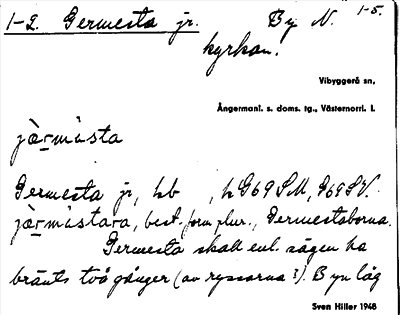 1-2. Germesta jr. By N. 1-5.
kyrkan!
Vibyggerå sn,
Ångermanl. s. doms. tg., Västernorrl. l.
jà̱rmìsta
Germesta jr, hb , h G69 SM, G69 SV.
jà̱rmìstara, best. form plur., Germestaborna.
Germesta skall enl. sägen ha
bränts två gånger (av ryssarna?). Byn låg
Sven Hiller 1948